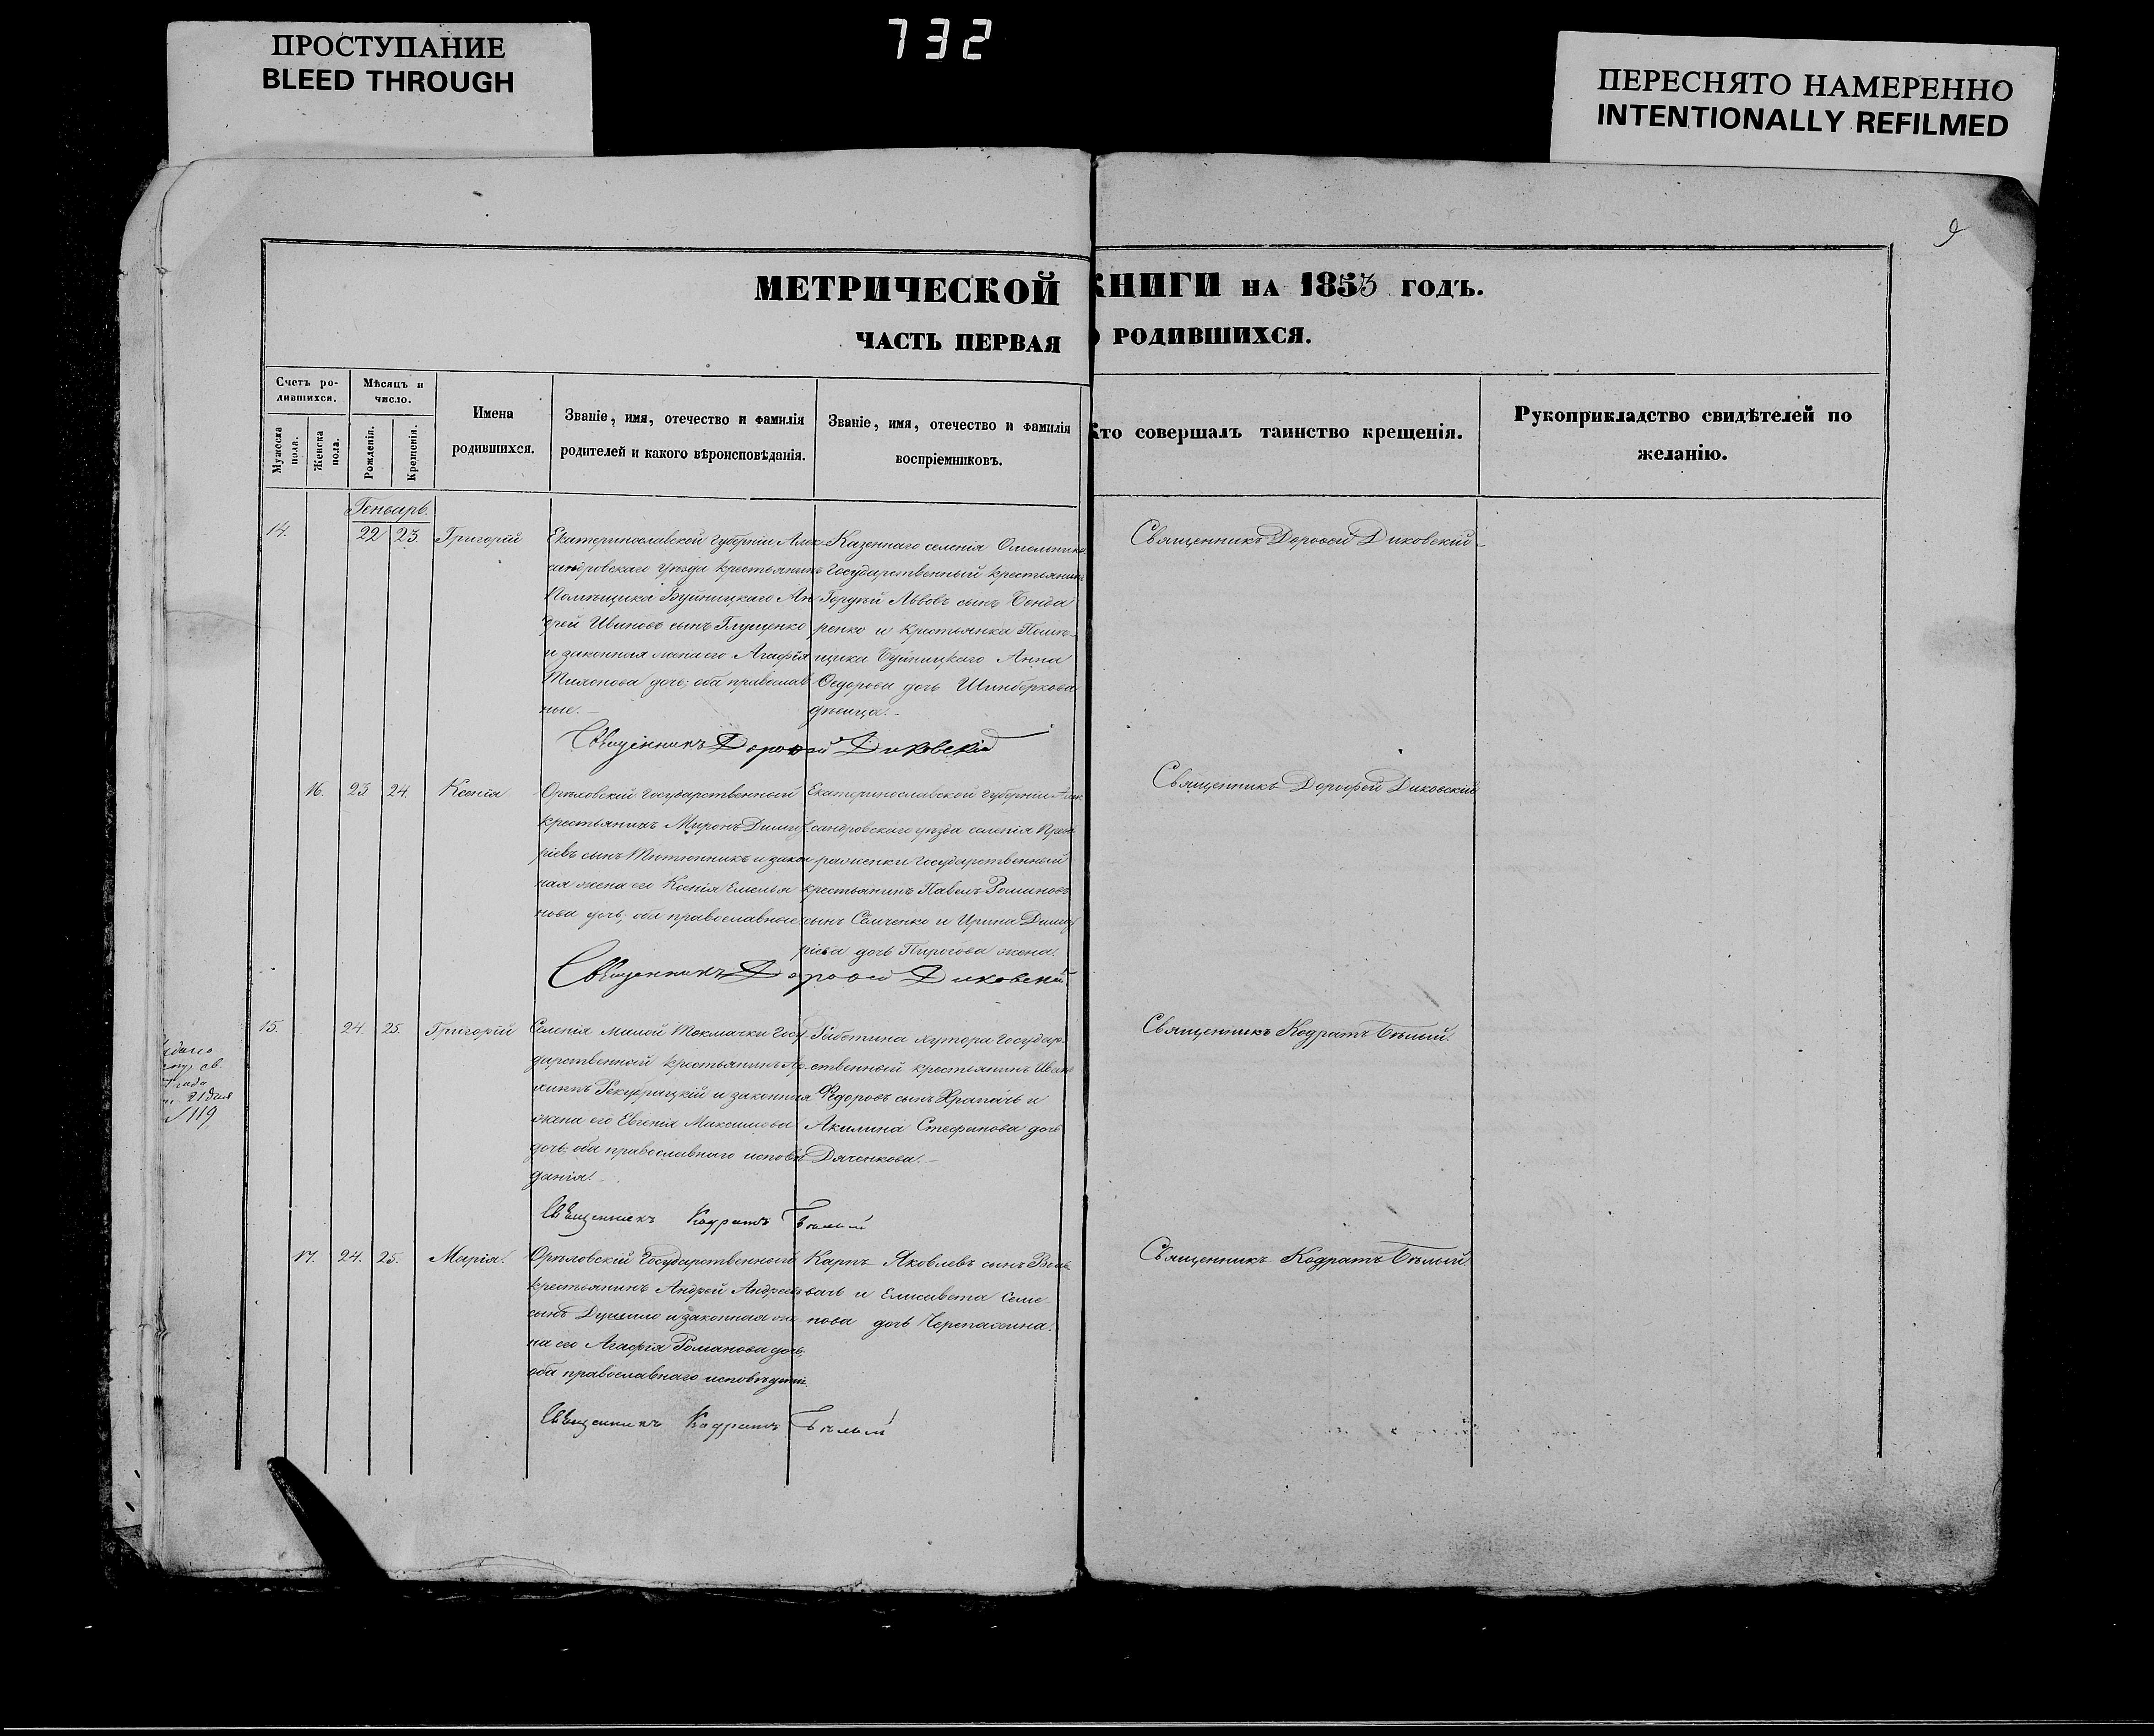 ПРОСТУПАНИЕ
BLEED THROUGH
732
ПЕРЕСНЯТО НАМЕРЕННО
INTENTIONALLY REFILMED
9
МЕТРИЧЕСКОЙ КНИГИ НА 1853 ГОДЪ.
ЧАСТЬ ПЕРВАЯ О РОДИВШИХСЯ.
Счетъ ро-
дившихся.
Мужеска пола.
Женска пола.
Мѣсяцъ и
число.
Рожденія.
Крещенія.
Имена
родившихся.
Званіе, имя, отечество и фамилія
родителей и какого вѣроисповѣданія.
Званіе, имя, отечество и фамилія
воспріемниковъ.
Кто совершалъ таинство крещенія.
Рукоприкладство свидѣтелей по
желанію.
Генварь.
14. 22 23. Григорій
Екатеринославской губерніи Алек
сандровскаго уѣзда крестьянинъ
Помѣщика Буйницкаго Ан
дрей Ивановъ сынъ Глущенко
и законная жена его Агафія
Тихонова дочь; оба православ
ные.
Казеннаго селенія Омельника
Государственный крестьянинъ
Гордѣй Львовъ сынъ Бонда
ренко и крестьянка Помѣ-
щика Буйницкаго Анна
Федорова дочь
дѣвица.
Священникъ Дороѳей Диковскій
Священникъ Дороѳей Диковскій
16. 23 24. Ксенія
Орѣховскій Государственный
крестьянинъ Миронъ Димит
ріевъ сынъ Тютюнникъ и закон
ная жена его Ксенія Емелья
нова дочь, оба православные
Екатеринославской губерніи Алек
сандровскаго уѣзда селенія Прео
браженки Государственный
крестьянинъ Павелъ Романовъ
сынъ Семченко и Ирина Димит
ріева дочь Пирогова жена.
Священникъ Дороѳей Диковскій
Священникъ Дорофей Диковскій
15. 24 25. Григорій
Селенія Малой Токмачки Госу
дарственный крестьянинъ
и законная
жена его Евгенія Максимова
дочь; оба православнаго исповѣ
данія.
Работина хутора Государ-
ственный крестьянинъ Иванъ
Ѳедоровъ сынъ Храпачъ и
Акилина Стефанова дочь
Дяченкова.
Священникъ Кодратъ Бѣлый
Священникъ Кодратъ Бѣлый.
21
№ 119
17. 24. 25. Марія.
Орѣховскій Государственный
крестьянинъ Андрей Андреевъ
сынъ и законная же
на его Агафія Романова дочь,
оба православнаго исповѣданія.
Карпъ Яковлевъ сынъ
и Елисавета Семе-
нова дочь Черепахина.
Священникъ Кодратъ Бѣлый
Священникъ Кодратъ Бѣлый.